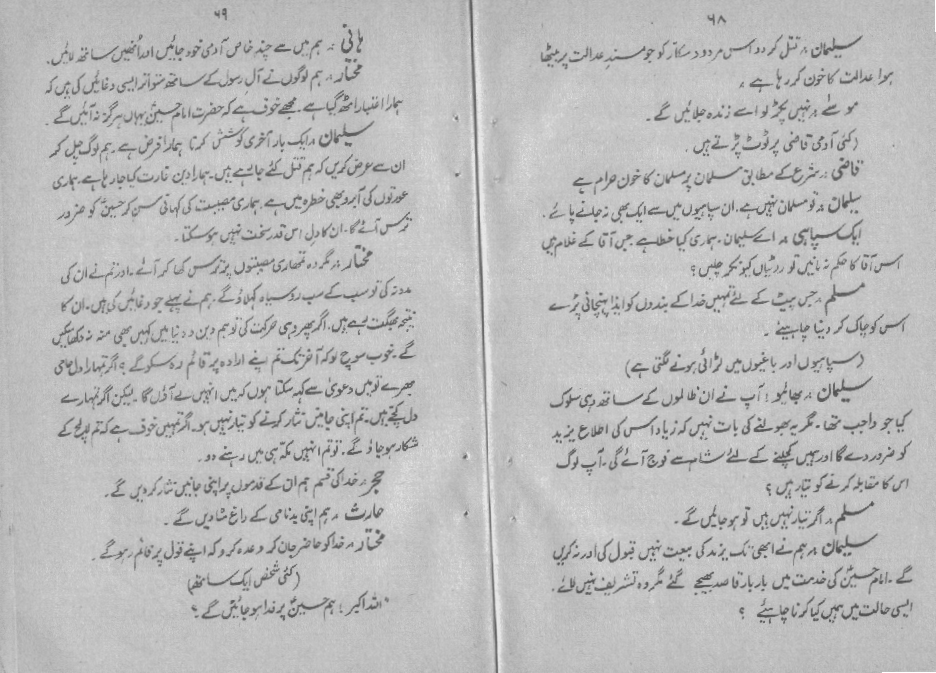 ۶۸
سلیمان :۔ قتل کر دو اس مردود مکّار کو جو مسندِ عدالت پر بیٹھا
ہوا عدالت کا خون کر رہا ہے ۔
موسےٰ :۔ نہیں پکڑ لو اسے زندہ جلائیں گے ۔
(کئی آدمی قاضی پر ٹوٹ پڑتے ہیں )
قاضی :۔ شرع کے مطابق مسلمان پر مسلمان کا خون حرام ہے
سلیمان :۔ تو مسلمان نہیں ہے ۔ ان سپاہیوں میں سے ایک بھی نہ جانے پائے ۔
ایک سپاہی :۔ اے سلیمان ۔ ہماری کیا خطا ہے جس آقا کے غلام ہیں
اس آقا کا حکم نہ مانیں تو روٹیاں کیونکر چلیں ؟
مسلم :۔ جس پیٹ کے لئے تمہیں خدا کے بندوں کو ایذا پہنچانی پڑے
اس کو چاک کر دینا چاہیئے ۔
(سپاہیوں اور باغیوں میں لڑائی ہونے لگتی ہے)
سلیمان :۔ بھائیو ! آپ نے ان ظالموں کے ساتھ وہی سلوک
کیا جو واجب تھا ۔ مگر یہ بھولنے کی بات نہیں کہ زیاد اس کی اطلاع یزید
کو ضرور دے گا اور ہمیں کچلنے کے لئے شام سے فوج آئے گی ۔ آپ لوگ
اس کا مقابلہ کرنے کو تیار ہیں ؟
مسلم :۔ اگر تیار نہیں ہیں تو ہو جائیں گے ۔
سلیمان :۔ ہم نے ابھی تک یزید کی بیعت نہیں قبول کی اور نہ کریں
گے ۔ امام حسینؑ کی خدمت میں بار بار قاصد بھیجے گئے مگر وہ تشریف نہیں لائے ۔
ایسی حالت میں ہمیں کیا کرنا چاہیئے ؟
۶۹
ہانی :۔ ہم میں سے چند خاص آدمی خود جائیں اور اُنھیں ساتھ لائیں ۔
مختار :۔ ہم لوگوں نے آلِ رسول کے ساتھ متواتر ایسی دغائیں کی ہیں کہ
ہمارا اعتبار اٹھ گیا ہے ۔ مجھے خوف ہے کہ حضرت امام حسینؑ یہاں ہرگز نہ آئیں گے ۔
سلیمان :۔ ایک بار آخری کوشش کرنا ہمارا فرض ہے ۔ ہم لوگ چل کر
ان سے عرض کریں کہ ہم قتل کئے جا رہے ہیں ۔ ہمارا دین غارت کیا جا رہا ہے ۔ ہماری
عورتوں کی آبرو بھی خطرہ میں ہے ۔ ہماری مصیبت کی کہانی سن کر حسینؑ کو ضرور
ترس آئے گا ۔ ان کا دل اس قدر سخت نہیں ہو سکتا ۔
مختار :۔ مگر وہ تمھاری مصیبتوں پر ترس کھا کر آئے ۔ اور تم نے ان کی
مدد نہ کی تو سب کے سب رو سیاہ کہلاؤ گے ۔ ہم نے پہلے جو دغائیں کی ہیں ۔ ان کا
نتیجہ بھگت رہے ہیں ۔ اگر پھر وہی حرکت کی تو ہم دین و دنیا میں کہیں بھی منہ نہ دکھا سکیں
گے ۔ خوب سوچ لو کہ آخر تک تم اپنے ارادہ پر قائم رہ سکو گے ؟ اگر تمہارا دل حامی
بھرے تو میں دعویٰ سے کہہ سکتا ہوں کہ میں انہیں لے آؤں گا ۔ لیکن اگر تمہارے
دل کچے ہیں ۔ تم اپنی جانیں نثار کرنے کو تیار نہیں ہو ۔ اگر تمہیں خوف ہے کہ تم لالچ کے
شکار ہو جاؤ گے ۔ تو تم انہیں مکّہ ہی میں رہنے دو ۔
حجر :۔ خدا کی قسم ہم ان کے قدموں پر اپنی جانیں نثار کر دیں گے ۔
حارث :۔ ہم اپنی بدنامی کے داغ مٹا دیں گے ۔
مختار :۔ خدا کو حاضر جان کر وعدہ کرو کہ اپنے قول پر قائم رہو گے ۔
(کئی شخص ایک ساتھ)
اللہ اکبر ! ہم حسینؑ پر فدا ہو جائیں گے ؟